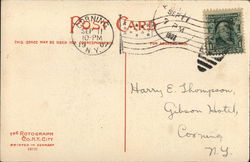 POST CARD
CORNING
SEP 11
10-PM
N.Y.
SEPT 11
PM
THIS SPACE MAY BE USED FOR CORRESPONDENCE
Harry E. Thompson,
Gibson Hotel,
Corning
N.Y.
THE ROTOGRAPH
CO. N.Y. CITY
PRINTED IN GERMANY